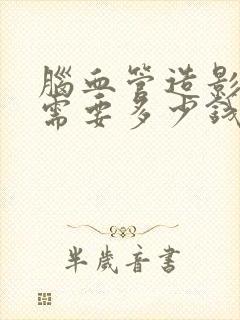 腦血管造影
需要多少錢
半歲音書